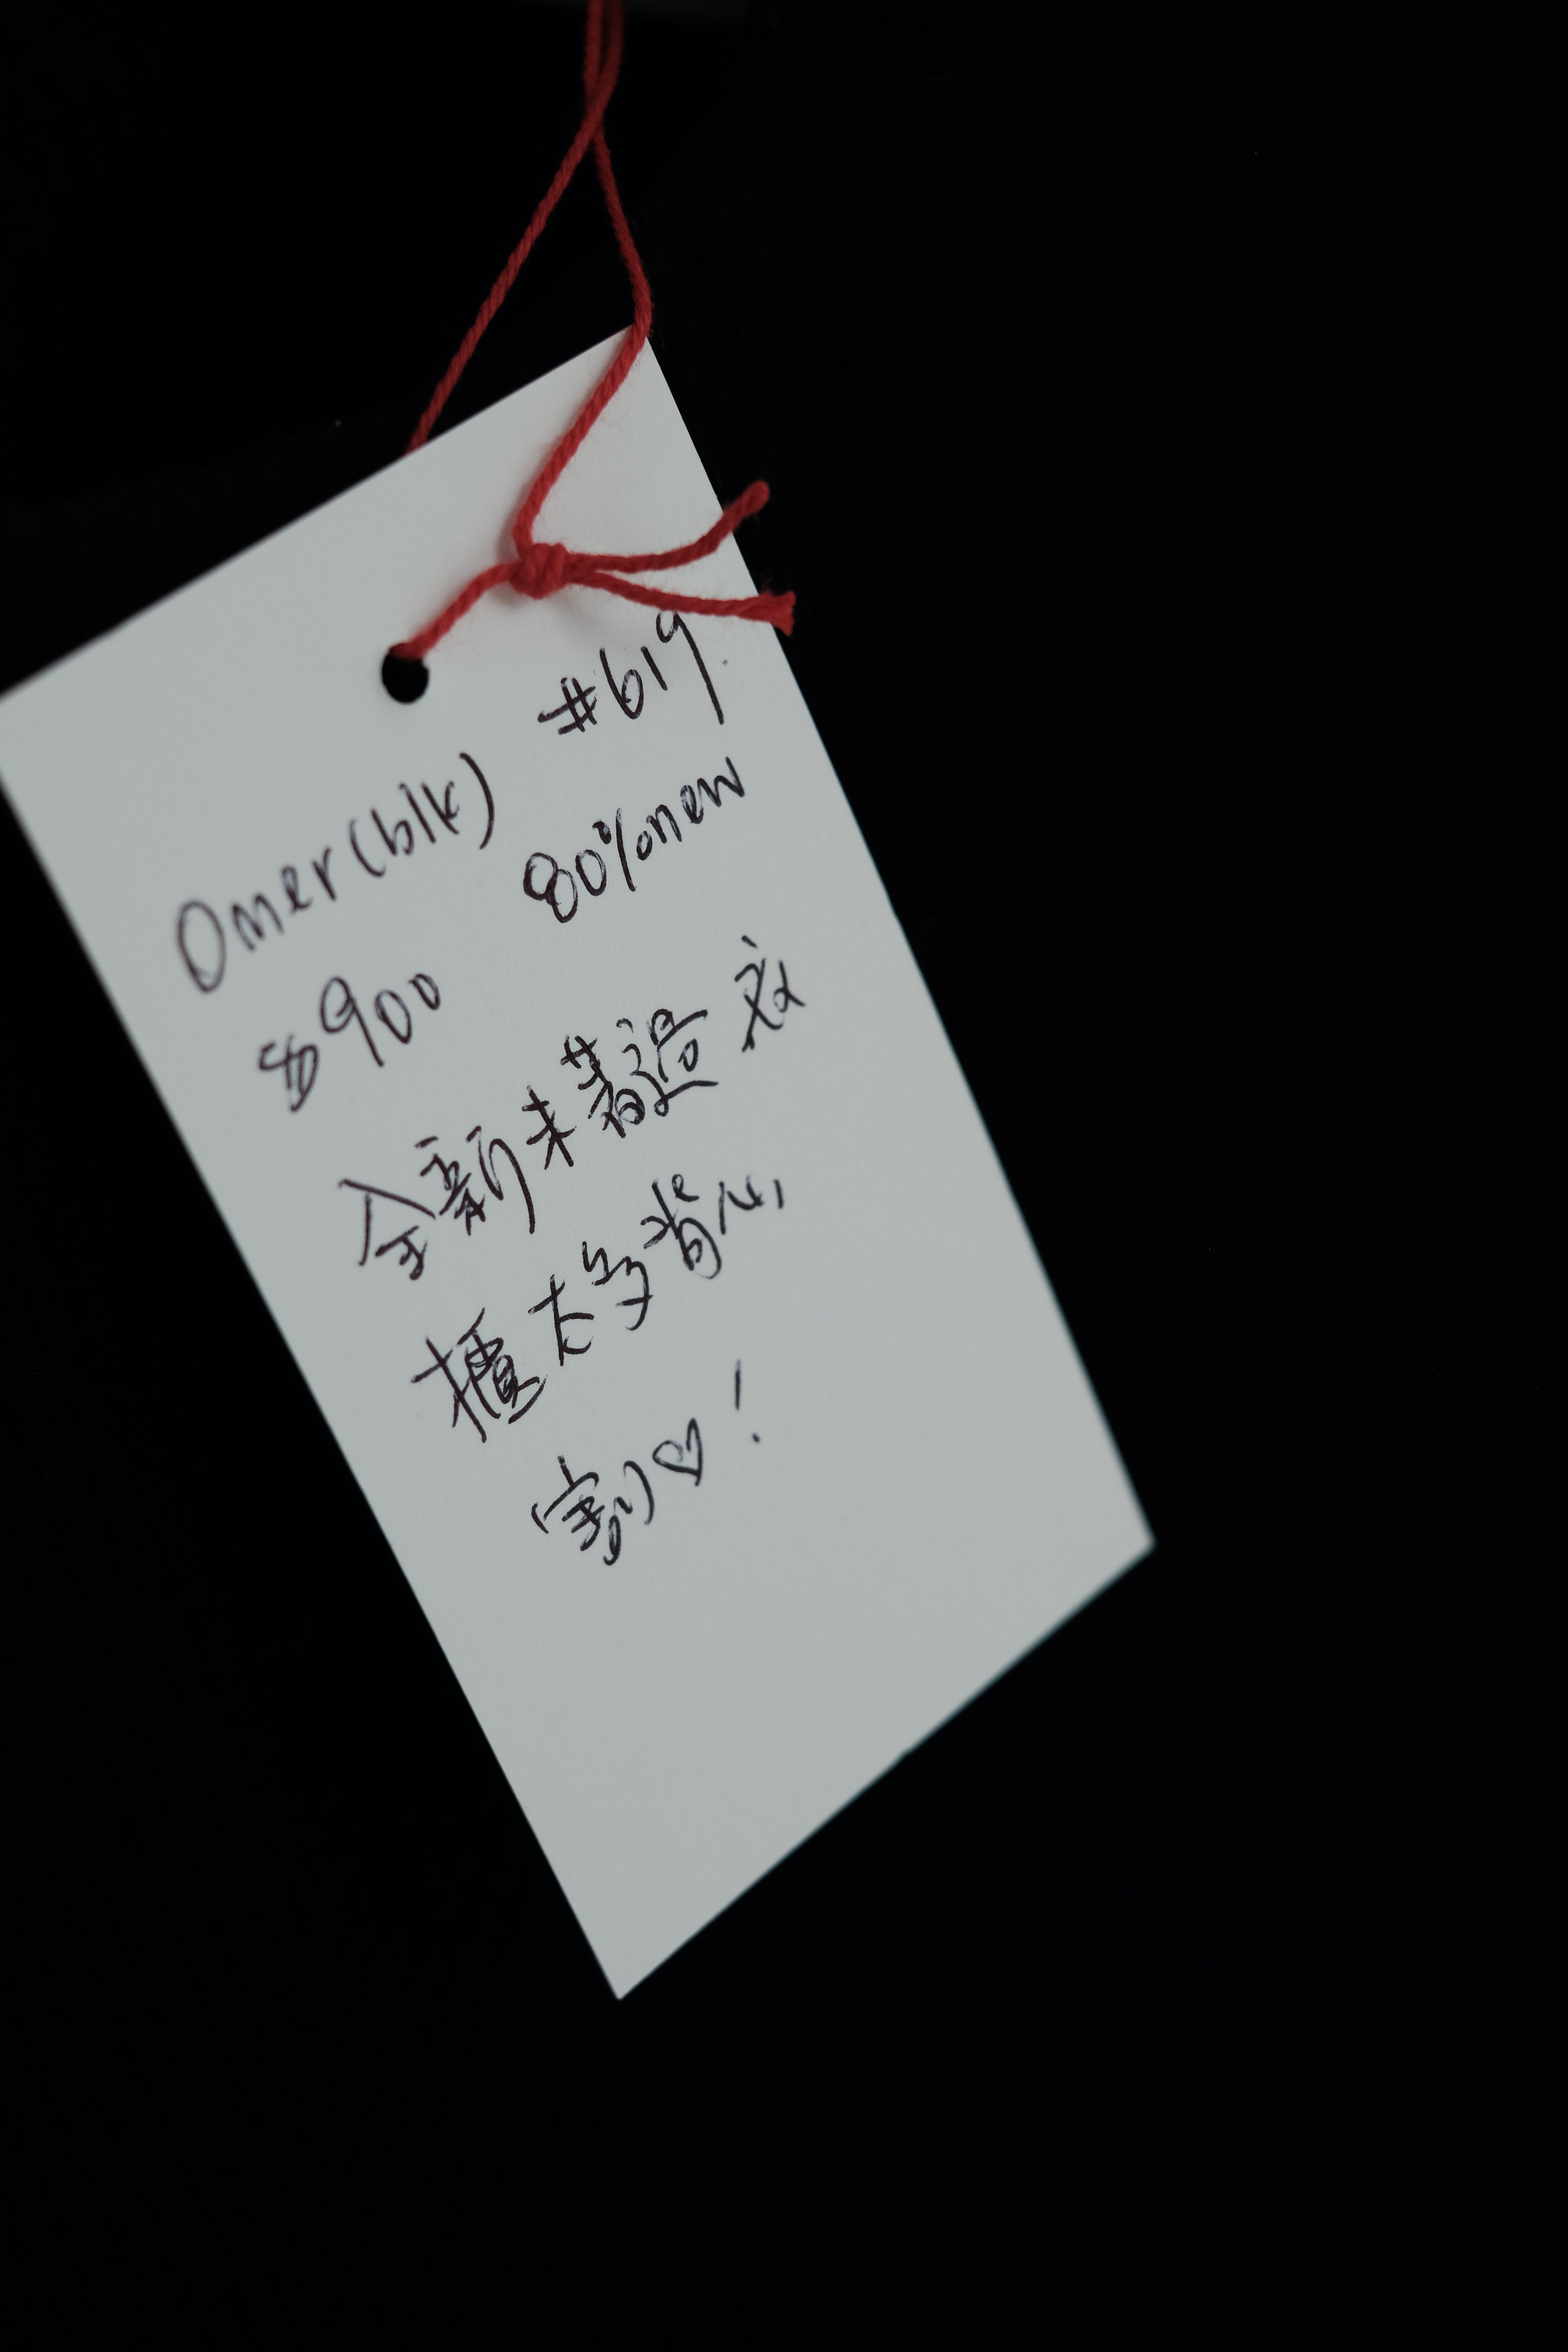 #619
Omer(blk)
80%new
$900
全新未著過 衣
櫃太多背心
割♡!